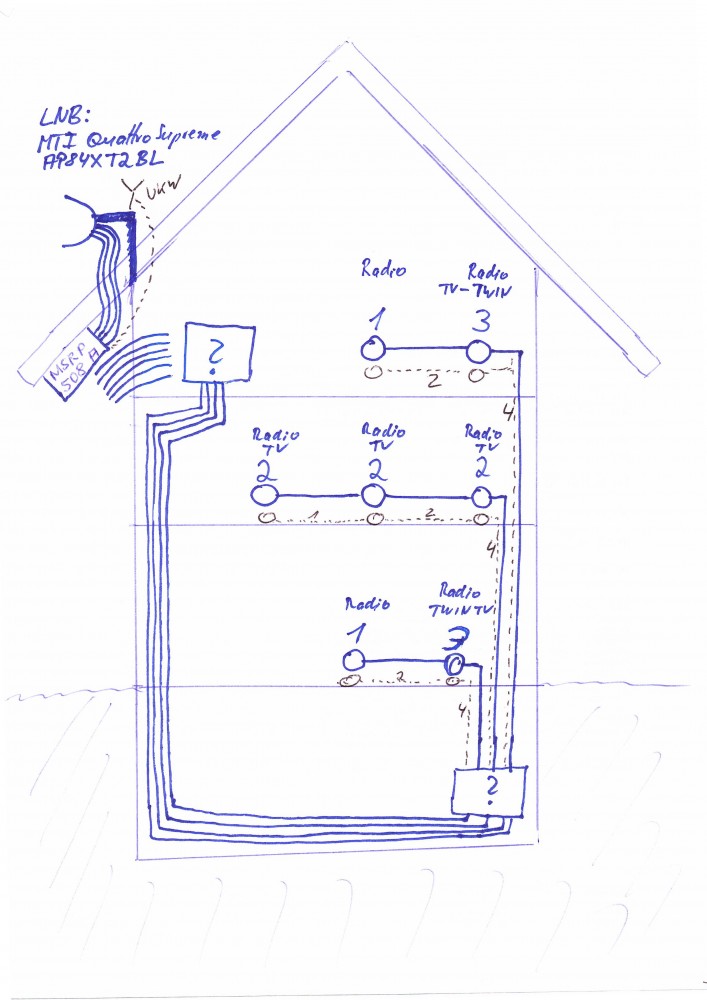 LNB:
MTI Quattro Supreme
AP84XT2BL
UKW
MSRP
508 A
?
Radio
Radio
TV-TWIN
1
3
2
4
Radio
TV
2
Radio
TV
2
Radio
TV
2
1
2
4
Radio
1
Radio
TWIN TV
3
2
4
?